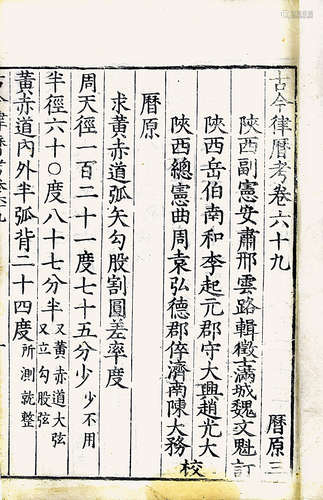 古今律曆考卷六十九
曆原三
陝西副憲安肅邢雲路輯徵士滿城魏文魁訂
陝西岳伯南和李起元郡守大興趙光大
陝西總憲曲周袁弘德郡倅濟南陳大務
校
曆原
求黃赤道弧矢勾股割圓差率度
周天徑一百二十一度七十五分少少不用
半徑六十〇度八十七分半又黃赤道大弦又立勾股弦
黃赤道內外半弧背二十四度所測就整